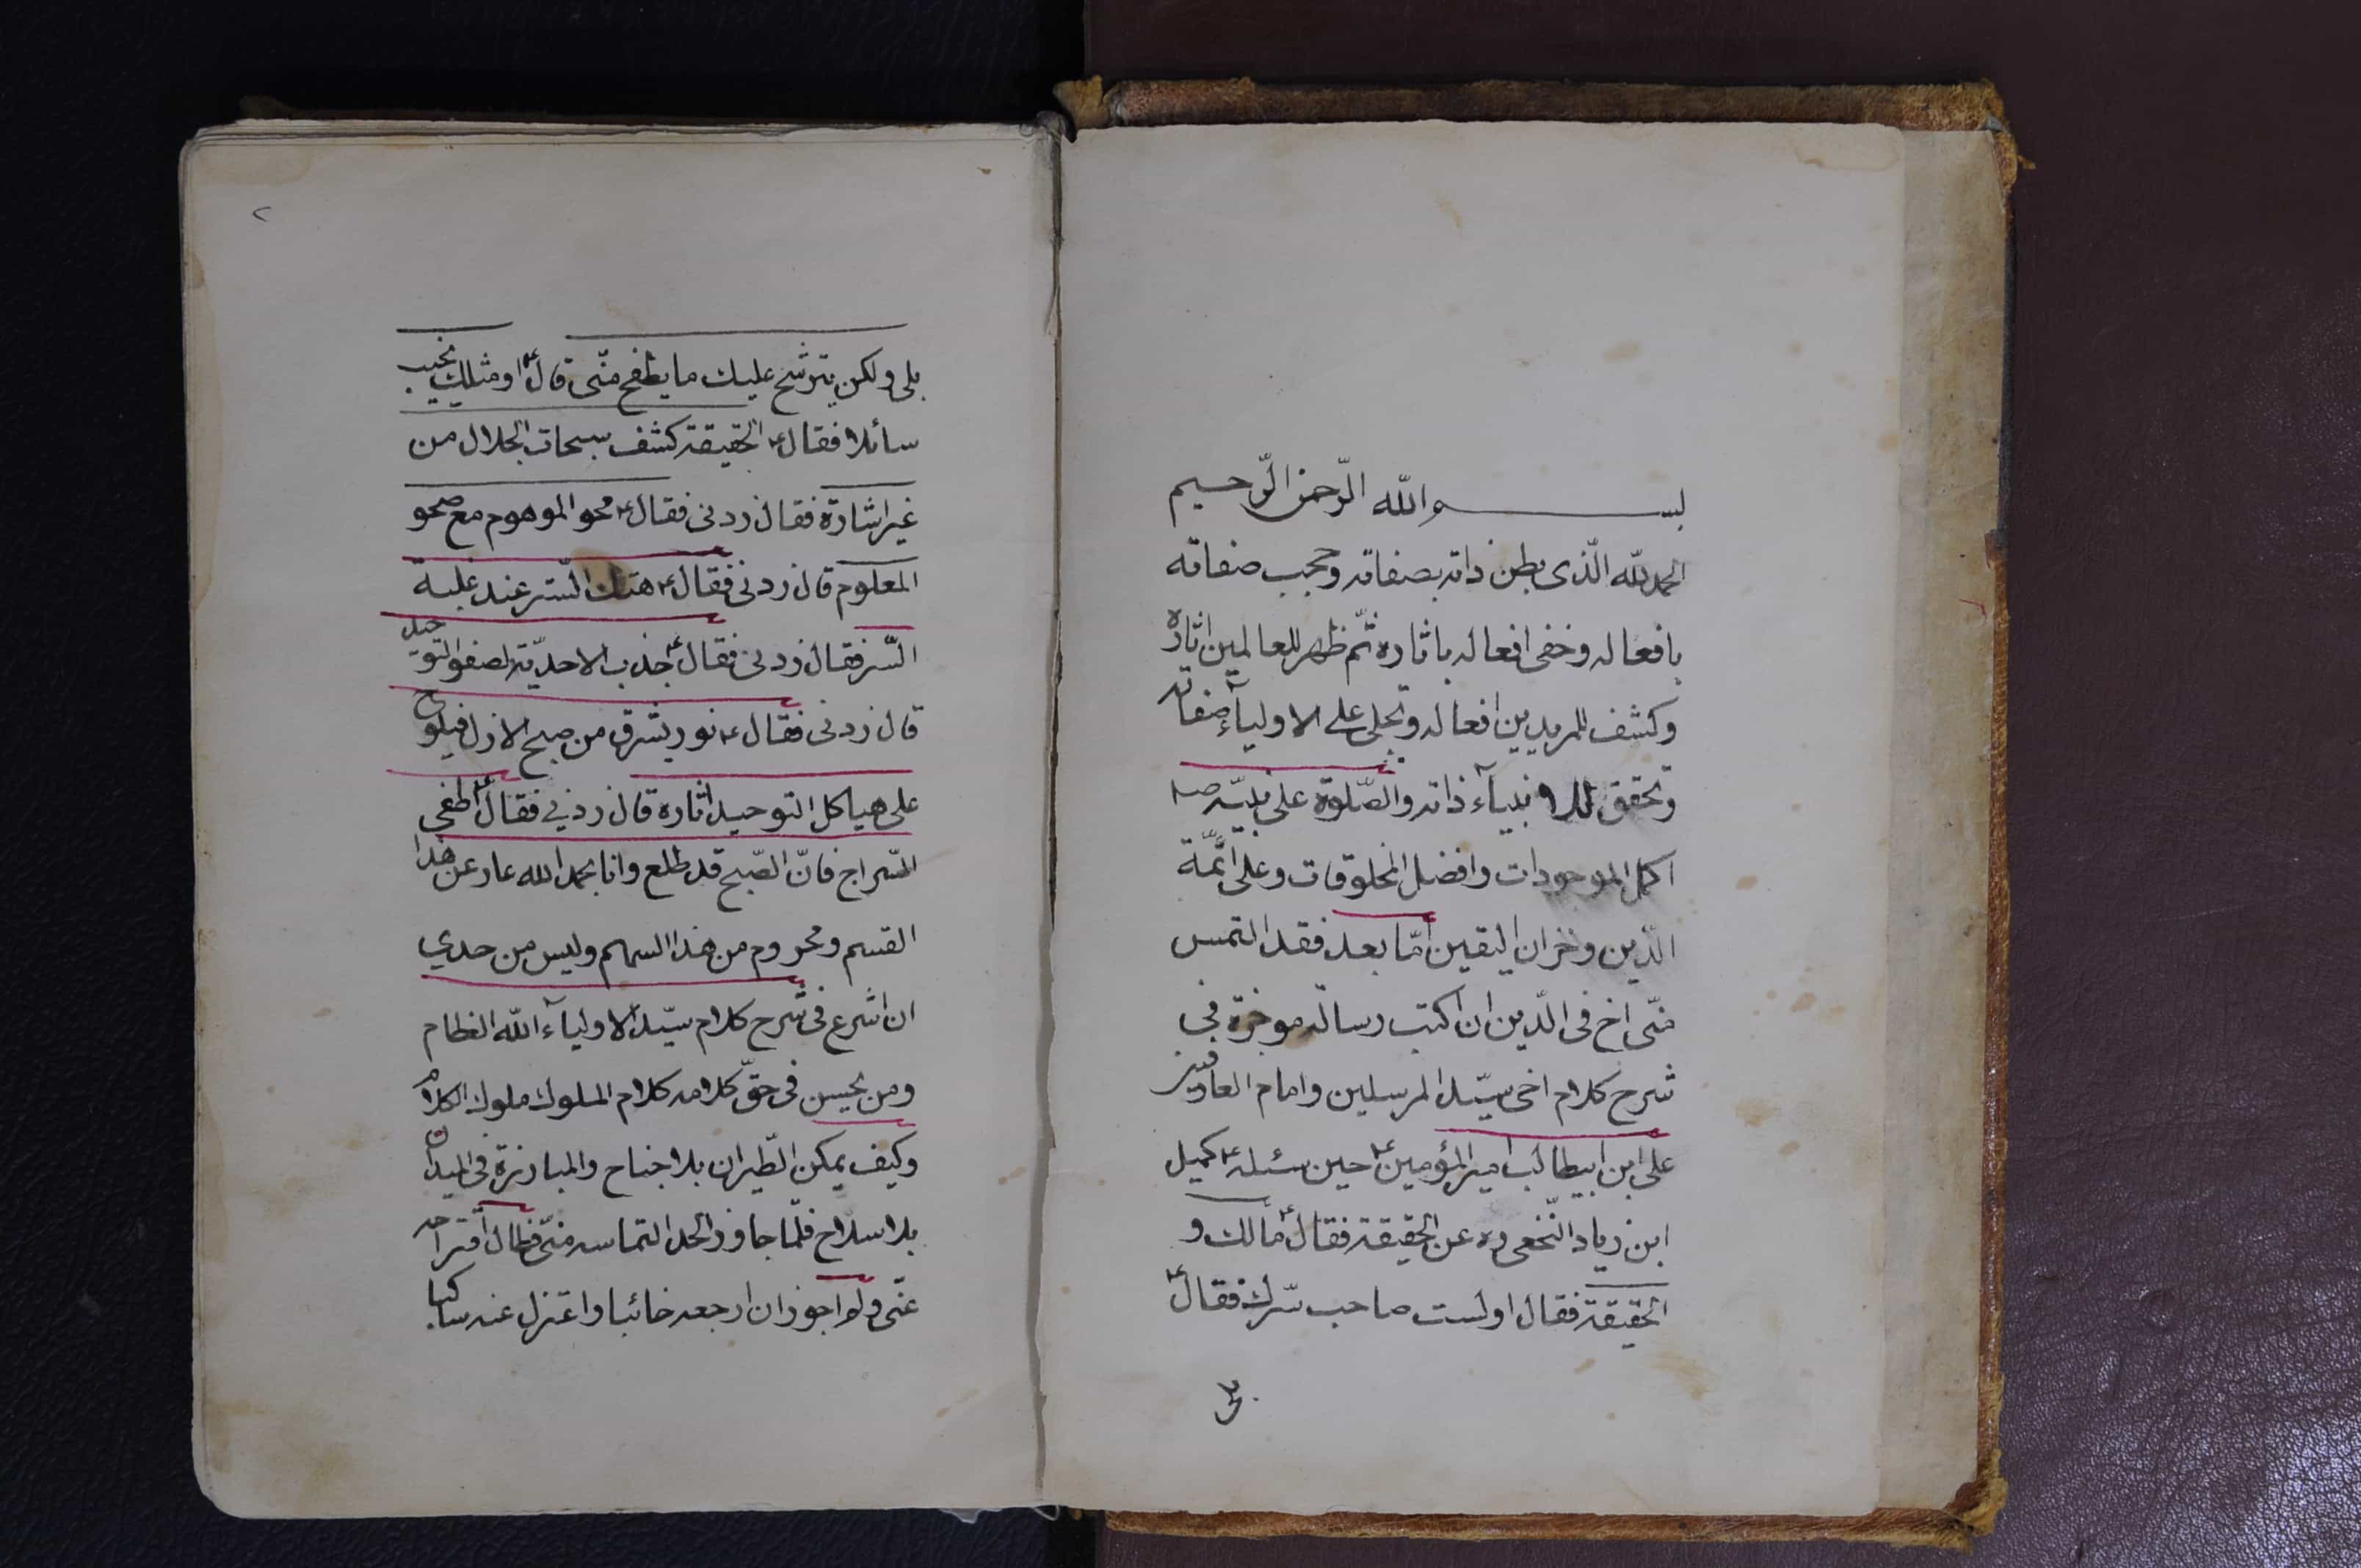 بسم الله الرّحمن الرّحيم
الحمد للّه الّذی بطن ذاته بصفاته وحجب صفاته
بافعاله وخفی افعاله باثاره ثمّ ظهر للعالمين اثاره
وكشف للمريدين افعاله وتجلی علی الاولیآء صفاته
وتحقق للانبیآء ذاته والصّلوة علی نبیّه ص
اكمل الموجودات وافضل المخلوقات وعلی ائمّة
الدّين وخزان اليقين امّا بعد فقد التمس
منّی اخ فی الدّين ان اكتب رسالة موجزة فی
شرح كلام اخی سيّد المرسلين وامام العارفين
علی ابن ابيطالب امير المؤمنين ع حين سئله ع كميل
ابن زياد النّخعی ره عن الحقيقة فقال ع مالك و
الحقيقة فقال اولست صاحب سّرك فقال ع
۲
بلی ولكن يترشح عليك ما يطفح منّی قال اومثلك يخيب
سائلا فقال ع الحقيقة كشف سبحات الجلال من
غير اشارة فقال زدنی فقال ع محو الموهوم مع صحو
المعلوم قال زدنی فقال ع هتك السّتر عند غلبة
السّر فقال زدنی فقال ع جذب الاحديّة لصفة التوحيد
قال زدنی فقال ع نور يشرق من صبح الازل فيلوح
علی هياكل التوحيد اثاره قال زدنی فقال ع اطفی
السّراج فانّ الصّبح قد طلع وانا بحمد الله عار عن هذا
القسم ومحروم من هذا السهم وليس من حدی
ان اشرع فی شرح كلام سيّد الاولیآء اللّه العظام
ومن يحسن فی حقّ كلامه كلام الملوك ملوك الكلام
وكيف يمكن الطّيران بلا جناح والمبارزة فی الميدان
بلا سلاح فلمّا جاوز الحد التماسه منّی وطال اقتراحه
عنّی ولم اجوز ان ارجعه خائبا واعتزل عنه ساكتا